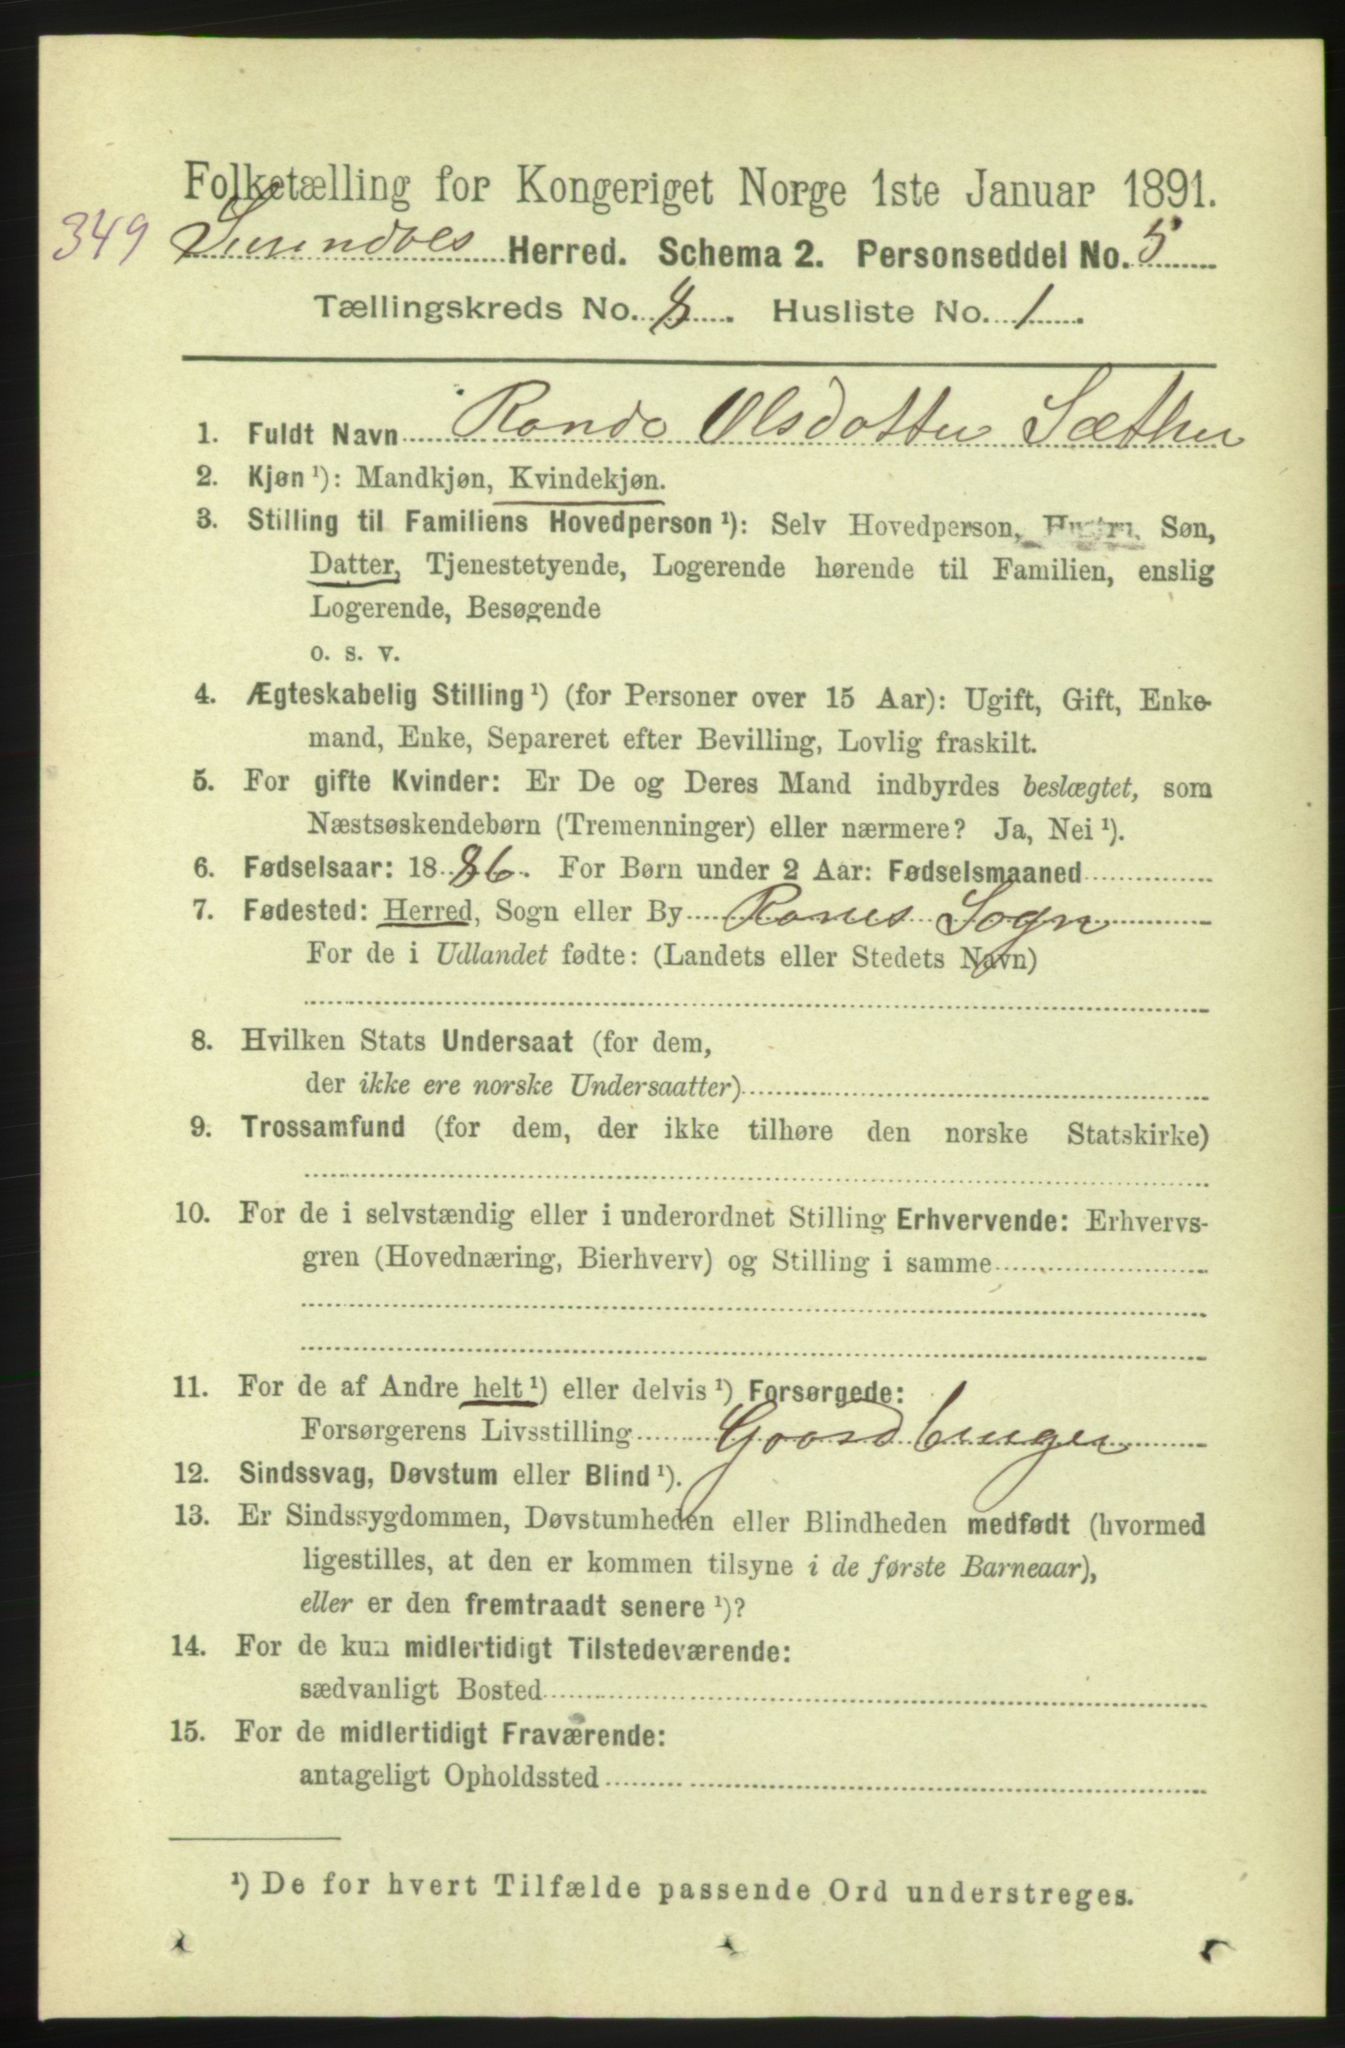 Folketælling for Kongeriget Norge 1ste Januar 1891.
349 Surendals Herred. Schema 2. Personseddel No. 5
Tællingskreds No. 8. Husliste No. 1.
1. Fuldt Navn Rande Olsdatter Sæther
2. Kjøn ¹): Mandkjøn, Kvindekjøn.
3. Stilling til Familiens Hovedperson ¹): Selv Hovedperson, Hustru, Søn,
Datter, Tjenestetyende, Logerende hørende til Familien, enslig
Logerende, Besøgende
o. s. v.
4. Ægteskabelig Stilling ¹) (for Personer over 15 Aar): Ugift, Gift, Enke-
mand, Enke, Separeret efter Bevilling, Lovlig fraskilt.
5. For gifte Kvinder: Er De og Deres Mand indbyrdes beslægtet, som
Næstsøskendebørn (Tremenninger) eller nærmere? Ja, Nei ¹).
6. Fødselsaar: 1886. For Børn under 2 Aar: Fødselsmaaned
7. Fødested: Herred, Sogn eller By Ranes Sogn
For de i Udlandet fødte: (Landets eller Stedets Navn)
8. Hvilken Stats Undersaat (for dem,
der ikke ere norske Undersaatter)
9. Trossamfund (for dem, der ikke tilhøre den norske Statskirke)
10. For de i selvstændig eller i underordnet Stilling Erhvervende: Erhvervs-
gren (Hovednæring, Bierhverv) og Stilling i samme
11. For de af Andre helt ¹) eller delvis ¹) Forsørgede:
Forsørgerens Livsstilling Gaardbruger
12. Sindssvag, Døvstum eller Blind ¹).
13. Er Sindssygdommen, Døvstumheden eller Blindheden medfødt (hvormed
ligestilles, at den er kommen tilsyne i de første Barneaar),
eller er den fremtraadt senere ¹)?
14. For de kun midlertidigt Tilstedeværende:
sædvanligt Bosted
15. For de midlertidigt Fraværende:
antageligt Opholdssted
¹) De for hvert Tilfælde passende Ord understreges.